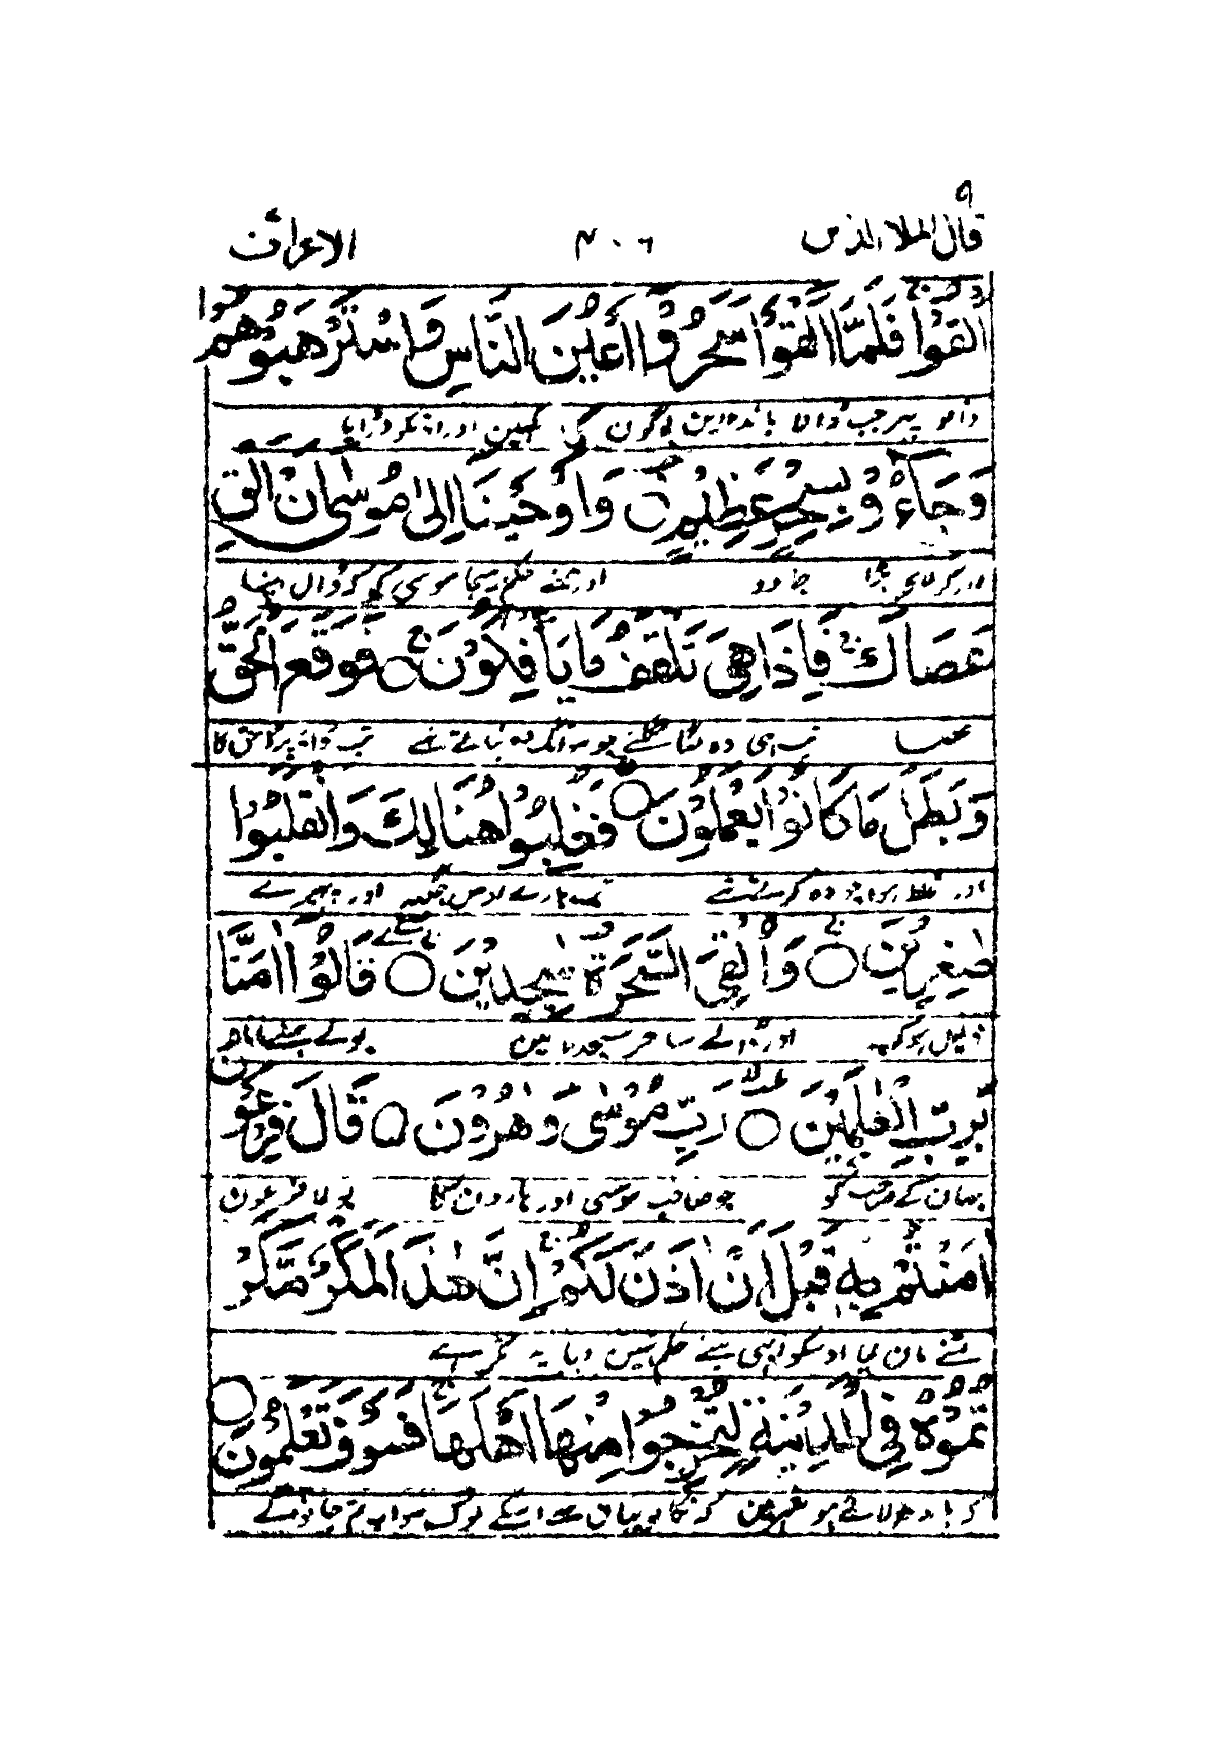 ۹
قال الملا الذین ۴۰۶ الاعراف
اَلْقَوْا فَلَمَّا اَلْقَوْا سَحَرُوْا اَعْیُنَ النَّاسِ وَاسْتَرْهَبُوْهُمْ
ڈالو پہر جب ڈالا باندھدین لوگون کی آنکہین اور انکو ڈرایا
وَجَآءُوْ بِسِحْرٍ عَظِیْمٍ وَاَوْحَیْنَا اِلٰی مُوْسٰی اَنْ اَلْقِ
اور کر لائے بڑا جادو اور ہمنے حکم بہیجا موسی کو کہ ڈال اپنا
عَصَاكَ فَاِذَا هِیَ تَلْقَفُ مَا یَاْفِكُوْنَ فَوَقَعَ الْحَقُّ
عصا تب ہی وہ لگا نگلنے جو سانگ وہ بناتے تہے تب ثابت ہوا حق کا
وَبَطَلَ مَا كَانُوْا یَعْمَلُوْنَ فَغُلِبُوْا هُنَالِكَ وَانْقَلَبُوْا
اور غلط ہوا جو وہ کرتے تہے تب ہارے اوس جگہہ اور پہرے
صٰغِرِیْنَ وَاُلْقِیَ السَّحَرَةُ سٰجِدِیْنَ قَالُوْا اٰمَنَّا
ذلیل ہو کر اور ڈالے ساحر سجدہ مین بولے ہمنے مانا
بِرَبِّ الْعٰلَمِیْنَ رَبِّ مُوْسٰی وَهٰرُوْنَ قَالَ فِرْعَوْنُ
جہان کے صاحب کو جو صاحب موسی اور ہارون کا بولا فرعون
اٰمَنْتُمْ بِهٖ قَبْلَ اَنْ اٰذَنَ لَكُمْ اِنَّ هٰذَا لَمَكْرٌ مَّكَرْ
تمنے مان لیا اوسکو ابہی مینے حکم نہین دیا یہ مکر ہے
تُمُوْهُ فِی الْمَدِیْنَةِ لِتُخْرِجُوْا مِنْهَا اَهْلَهَا فَسَوْفَ تَعْلَمُوْنَ
کہ باندہ لائے ہو شہر مین کہ نکالو یہان سے اسکے لوگ سو اب تم جانوگے